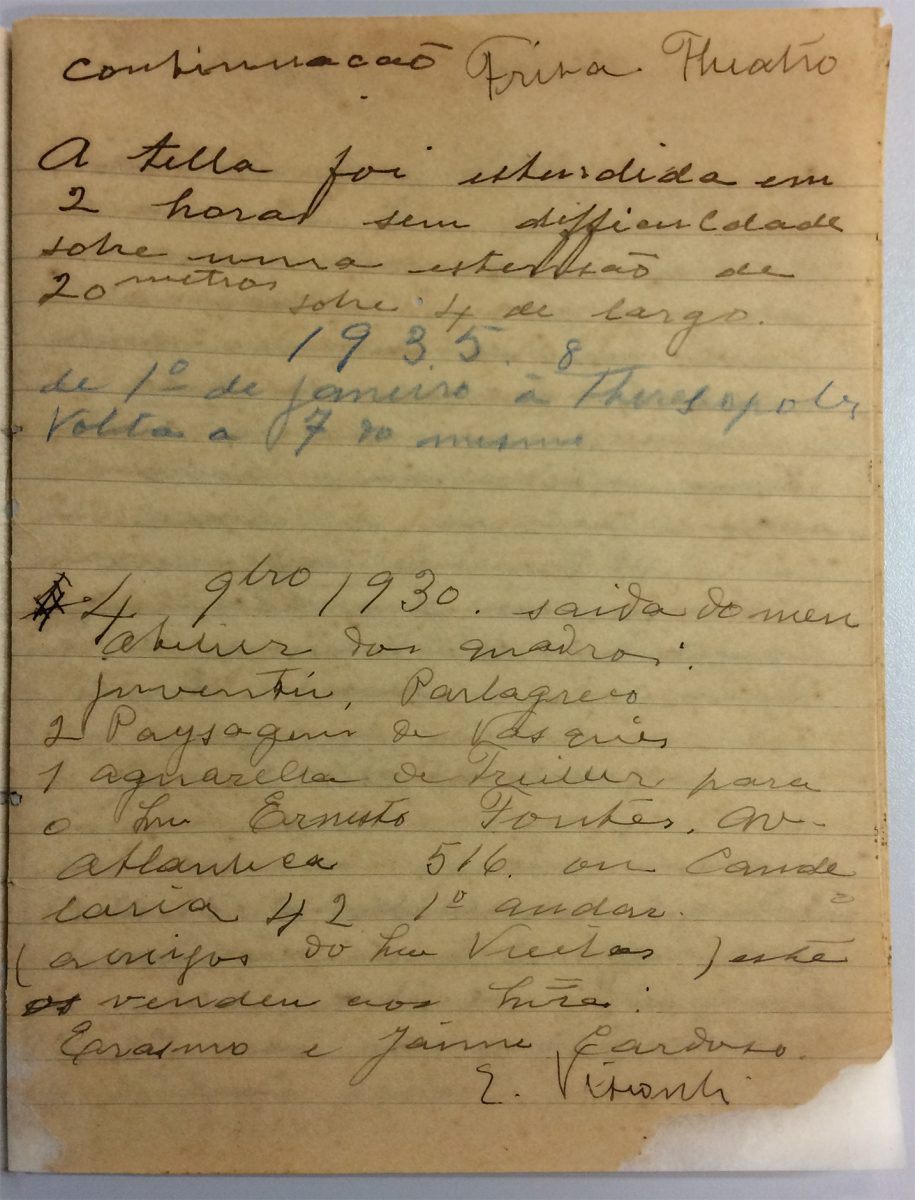 continuacaō Frisa Theatro
A tella foi estendida em
2 horas sem difficuldade
sobre uma estensão de
20 metros sobre 4 de largo.
1935. 8
de 1º de janeiro á Theresopolis
Volta a 7 do mesmo
4 9bro 1930. saida do meu
atelier dos quadros:
Juventú, Parlagreco
2 Paysagens de Vasquès
1 aquarella de Treidler para
o Snr Ernesto Fontes. av-
atlantica 516. ou Cande
laria 42 1º andar.
(amigos do Snr Freitas) este
vendeu aos Snrs:
Erasmo e Jaime Cardoso.
E. Visconti